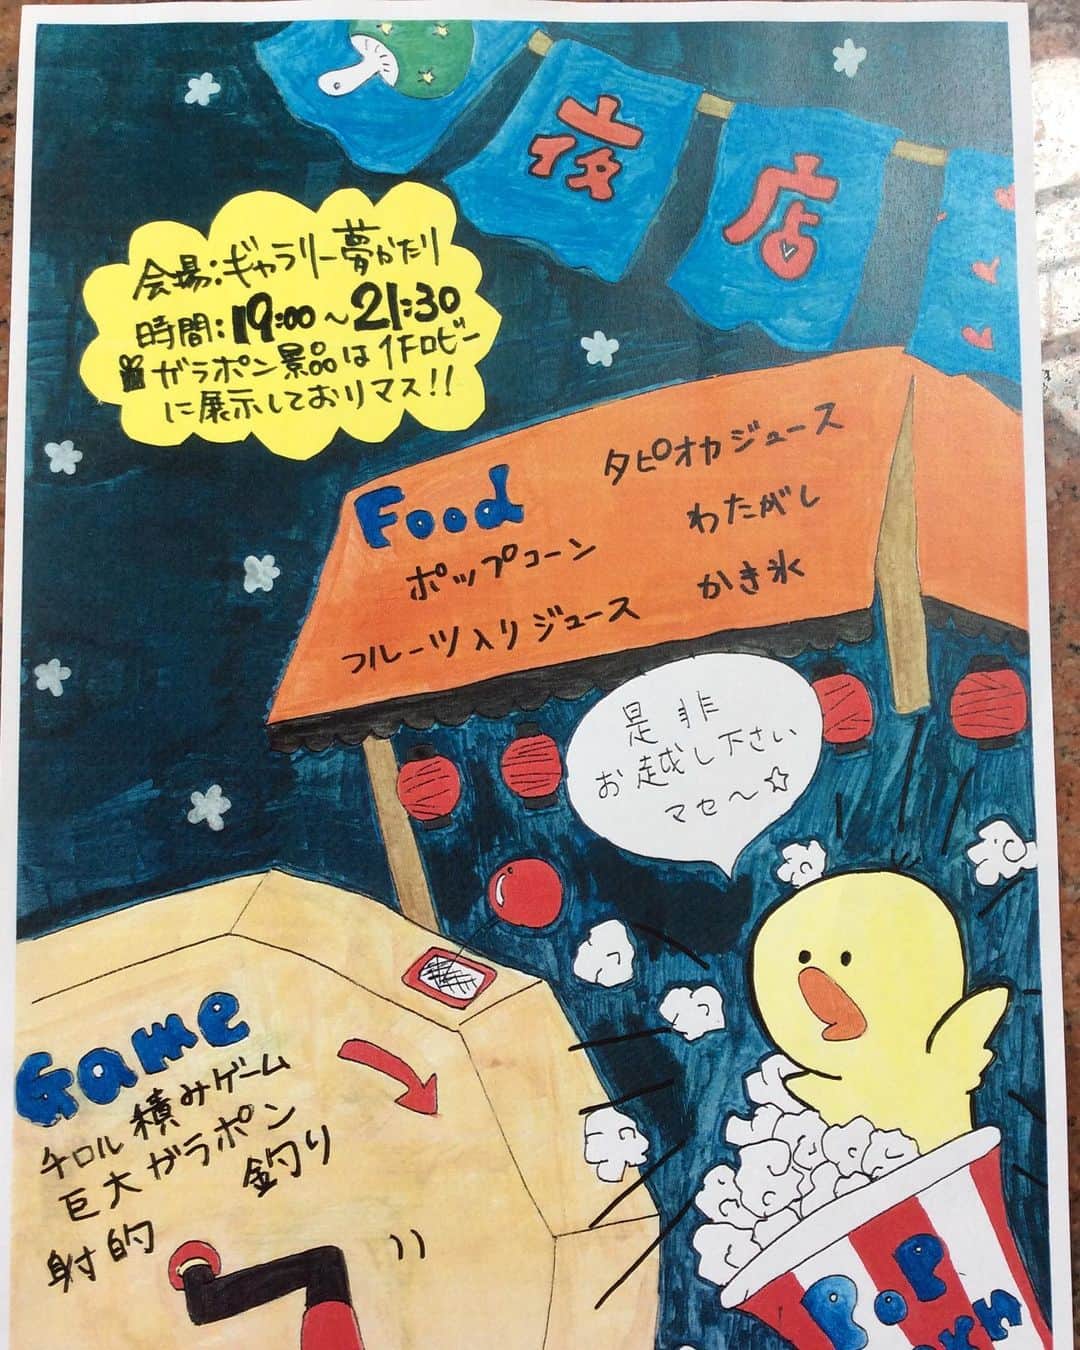 夜店
会場:ギャラリー夢かたり
時間:19:00~21:30
ガラポン景品は1Fロビー
に展示しておりマス!!
Food
タピオカジュース
ポップコーン
わたがし
フルーツ入りジュース
かき氷
是非
お越し下さい
マセ～☆
Game
チロル積みゲーム
巨大ガラポン
釣り
射的
POP